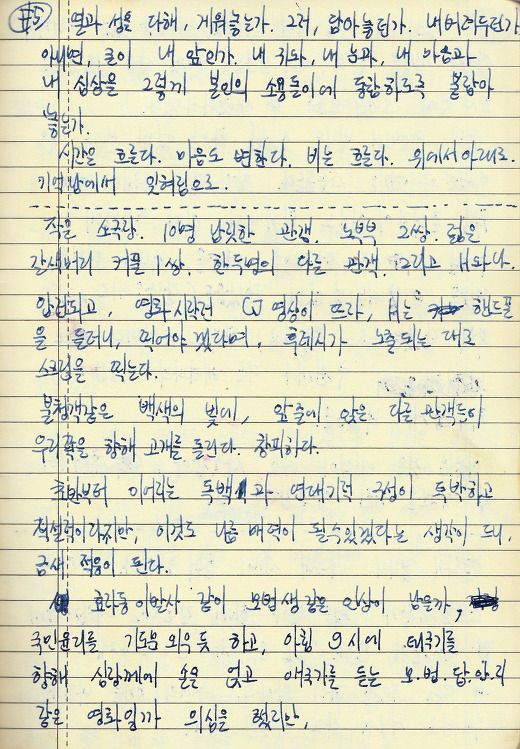 #5) 열과 성을 다해, 게워놓는가. 그려, 담아놓던가. 내버려두던가
아니면, 굳이 내 앞인가. 내 귀와, 내 눈과, 내 마음과
내 심상을 그렇게 본인의 소용돌이에 동참하도록 붙잡아
놓는가.
시간은 흐른다. 마음도 변한다. 비는 흐른다. 위에서 아래로.
기억남에서 잊혀짐으로.
작은 소극장. 10명 남짓한 관객. 노부부 2쌍. 젊은
갈색머리 커플 1쌍. 한두명의 다른 관객. 그리고 H와 나.
암전되고, 영화 시작전 CJ 영상이 뜨자, H는 핸드폰
을 들더니, 찍어야겠다며, 후레시가 노출되는 대로
스크린을 찍는다.
불청객같은 백색의 빛에, 앞줄에 앉은 다른 관객들이
우리쪽을 향해 고개를 돌린다. 창피하다.
초반부터 이어지는 독백과 연대기적 구성이 독박하고
직설적이라지만, 이것도 나름 매력이 될수있겠다는 생각이 드니,
금새 적응이 된다.
효자동 이발사 같이 모범생같은 인상이 남을까,
국민윤리를 기도문 외우듯 하고, 아침 9시에 태극기를
향해 심장께에 손을 얹고 애국가를 듣는 모.범.답.안.지
같은 영화일까 의심을 했지만,